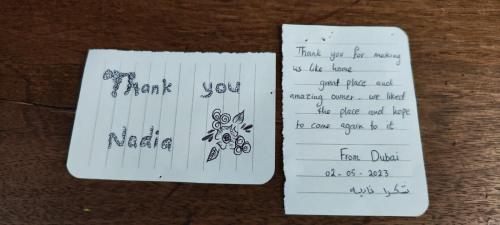 Thank you
Nadia
Thank you for making
us like home
great place and
amazing owner. we liked
the place and hope
to come again to it
From Dubai
02-05-2023
شكرا ناديه